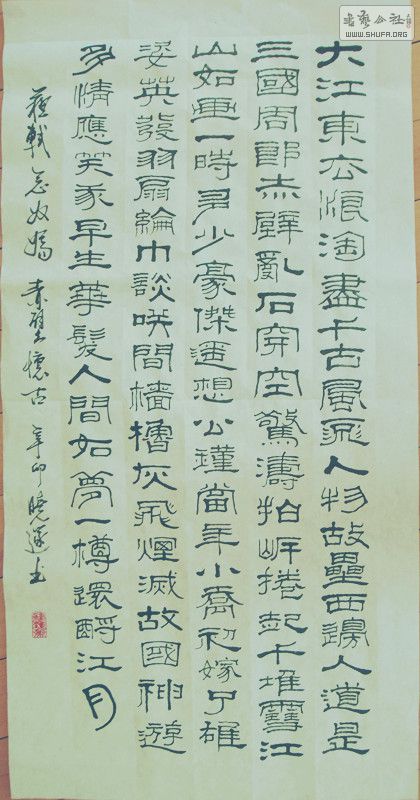 大江東去浪淘盡千古風流人物故壘西邊人道是
三國周郎赤壁亂石穿空驚濤拍岸捲起千堆雪江
山如畫一時多少豪傑遙想公瑾當年小喬初嫁了雄
姿英發羽扇綸巾談咲間檣櫓灰飛煙滅故國神遊
多情應笑我早生華髮人間如夢一樽還酹江月
蘇軾念奴嬌 赤壁懷古 辛卯曉書
书艺公社
WWW.SHUFA.ORG